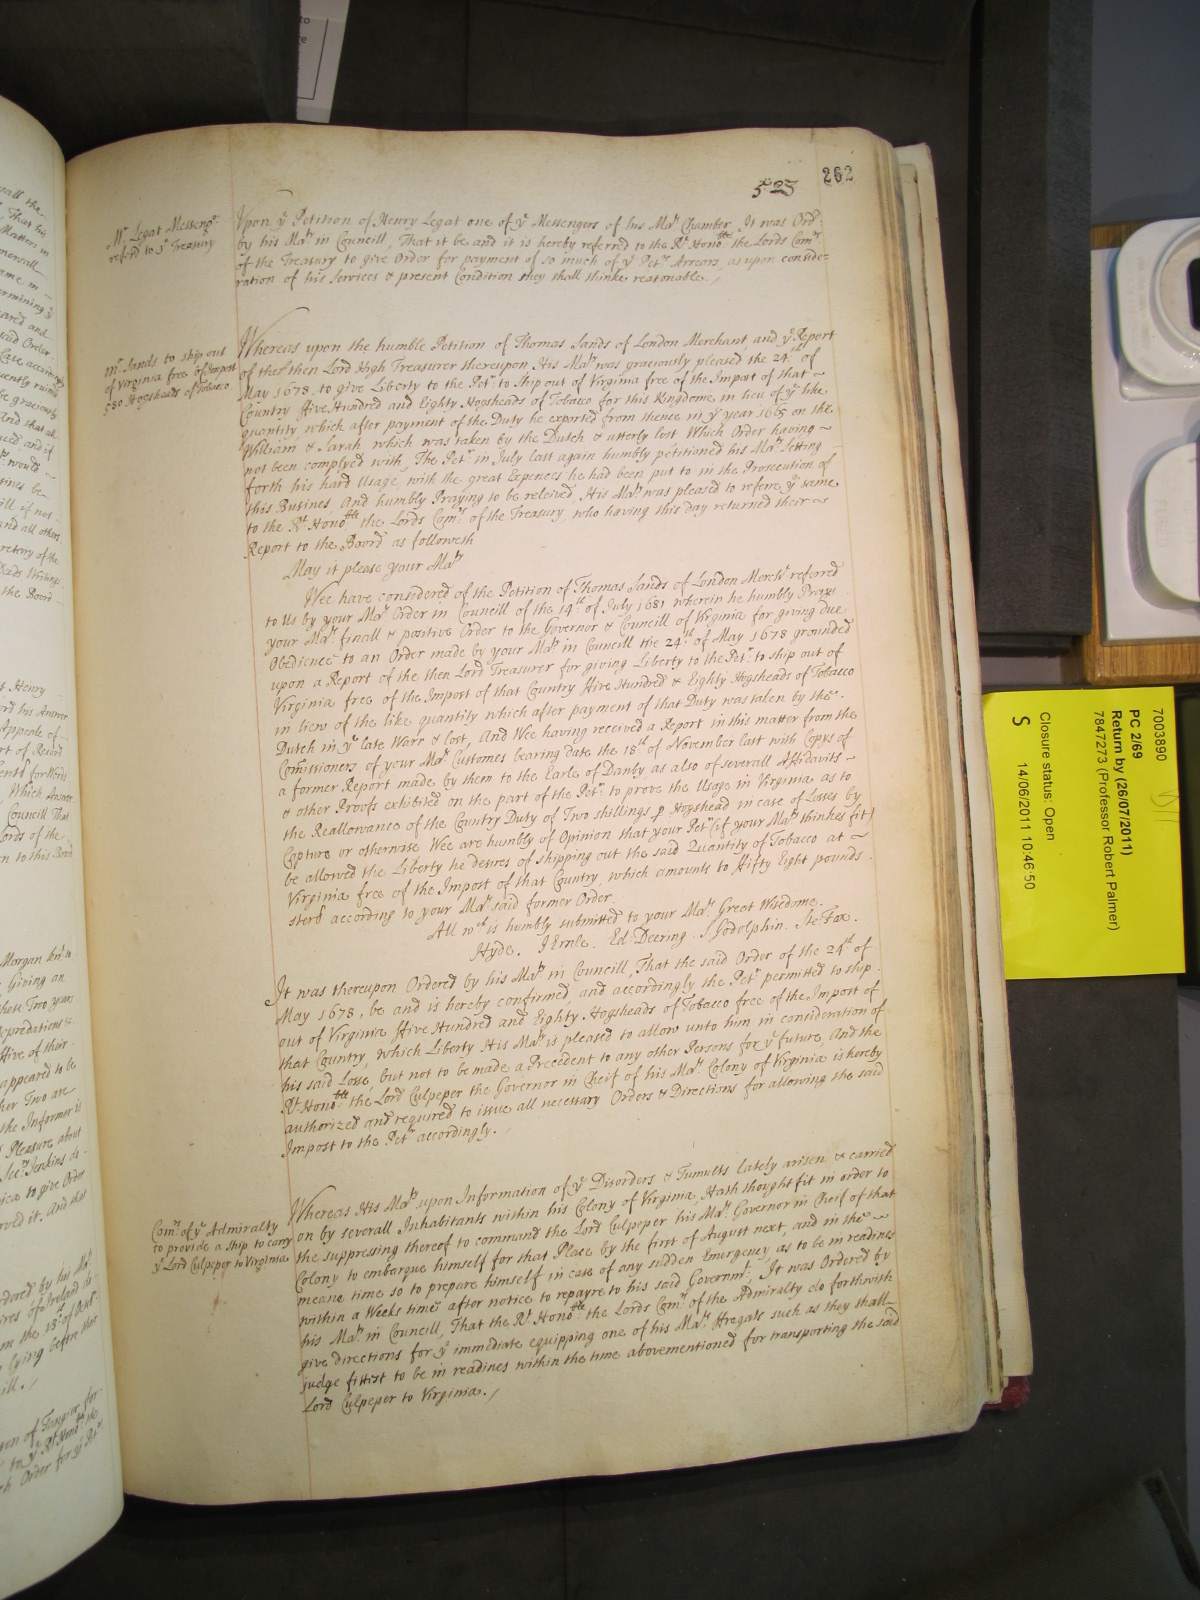 523 262
Mr. Legat Messengr.
referd to ye Treasury
Upon ye Petition of Henry Legat one of ye Messengers of his Maty. Chamber It was Ordrd
by his Maty. in Councill, That it be and it is hereby referred to the Rt. Honoble. the Lords Comrs.
of the Treasury to give Order for payment of so much of ye Petrs. Arrears, as upon conside=
ration of his Services & present Condition they shall thinke reasonable. /
mr. Sands to ship out
of Virginia free of Impost
580 Hogsheads of Tobacco
Whereas upon the humble Petition of Thomas Sands of London Merchant, and ye Report
of the then Lord High Treasurer thereupon His Maty. was graciously pleased the 24th. of
May 1678. to give Liberty to the Petr. to Ship out of Virginia free of the Impost of that ~
Country Five Hundred and Eighty Hogsheads of Tobacco for this Kingdome in lieu of ye like
quantity which after payment of the Duty he exported from thence in ye year 1665 on the
William & Sarah which was taken by the Dutch & utterly lost Which Order having ~
not been complyed with, The Petr. in July last again humbly petitioned his Maty. setting
forth his hard Usage, with the great Expences he had been put to in the Prosecution of
this Busines, And humbly Praying to be releived, His Maty. was pleased to referre ye same
to the Rt. Honoble. the Lords Comrs. of the Treasury, who having this day returned their ~
Report to the Board as followeth
May it please your Maty.
Wee have considered of the Petition of Thomas Sands of London Mercht. referred
to Us by your Maty. Order in Councill of the 14th. of July 1681 wherein he humbly Prays
your Maty. finall & positive Order to the Governor & Councill of Virginia for giving due
Obedience to an Order made by your Maty. in Councill the 24th. of May 1678 grounded
upon a Report of the then Lord Treasurer for giving Liberty to the Petr. to ship out of
Virginia free of the Impost of that Country Five Hundred & Eighty Hogsheads of Tobacco
in liew of the like quantity which after payment of that Duty was taken by the
Dutch in ye late Warr & lost, And Wee having received a Report in this matter from the
Comissioners of your Maty. Customes bearing date the 18th. of November last with Copys of
a former Report made by them to the Earle of Danby as also of severall Affidavits ~
& other Proofs exhibited on the part of the Petr. to prove the Usage in Virginia as to
the Reallowance of the Country Duty of Two shillings p Hogshead in case of Losses by
Capture or otherwise Wee are humbly of Opinion that your Petr. (if your Maty. thinkes fit)
be allowed the Liberty he desires of shipping out the said Quantity of Tobacco at ~
Virginia free of the Impost of that Country, which amounts to Fifty Eight pounds
sterl according to your Maty. said former Order
All wch. is humbly submitted to your Maty. Great Wisedome.
Hyde. J Ernle. Ed: Deering. S Godolphin. Ste: Fox.
It was thereupon Ordered by his Maty. in Councill, That the said Order of the 24th. of
May 1678, be and is hereby confirmed, and accordingly the Petr. permitted to ship
out of Virginia Five Hundred and Eighty Hogsheads of Tobacco free of the Impost of
that Country, which Liberty His Maty. is pleased to allow unto him in consideration of
his said Losse, but not to be made a Precedent to any other Persons for ye future, And the
Rt. Honoble. the Lord Culpeper the Governor in Cheif of his Maty. Colony of Virginia is hereby
authorized and required to issue all necessary Orders & Directions for allowing the said
Impost to the Petr. accordingly.
Comrs. of ye Admiralty
to provide a ship to carry
ye Lord Culpeper to Virginia
Whereas His Maty. upon Information of ye Disorders & Tumults lately arisen & carried
on by severall Inhabitants within his Colony of Virginia, Hath thought fit in order to
the suppressing thereof to command the Lord Culpeper his Maty. Governor in Cheif of that
Colony to embarque himself for that Place by the first of August next, and in the ~
meane time so to prepare himself in case of any sudden Emergency as to be in readines
within a Weeks time after notice to repayre to his said Governmt. It was Ordered by
his Maty. in Councill, That the Rt. Honoble. the Lords Comrs. of the Admiralty do forthwith
give directions for ye immediate equipping one of his Maty. Fregats such as they shall
judge fittest to be in readines within the time abovementioned for transporting the said
Lord Culpeper to Virginia. /
7003890
PC 2/69
Return by (26/07/2011)
7847273 (Professor Robert Palmer)
Closure status: Open
14/06/2011 10:46:50
S